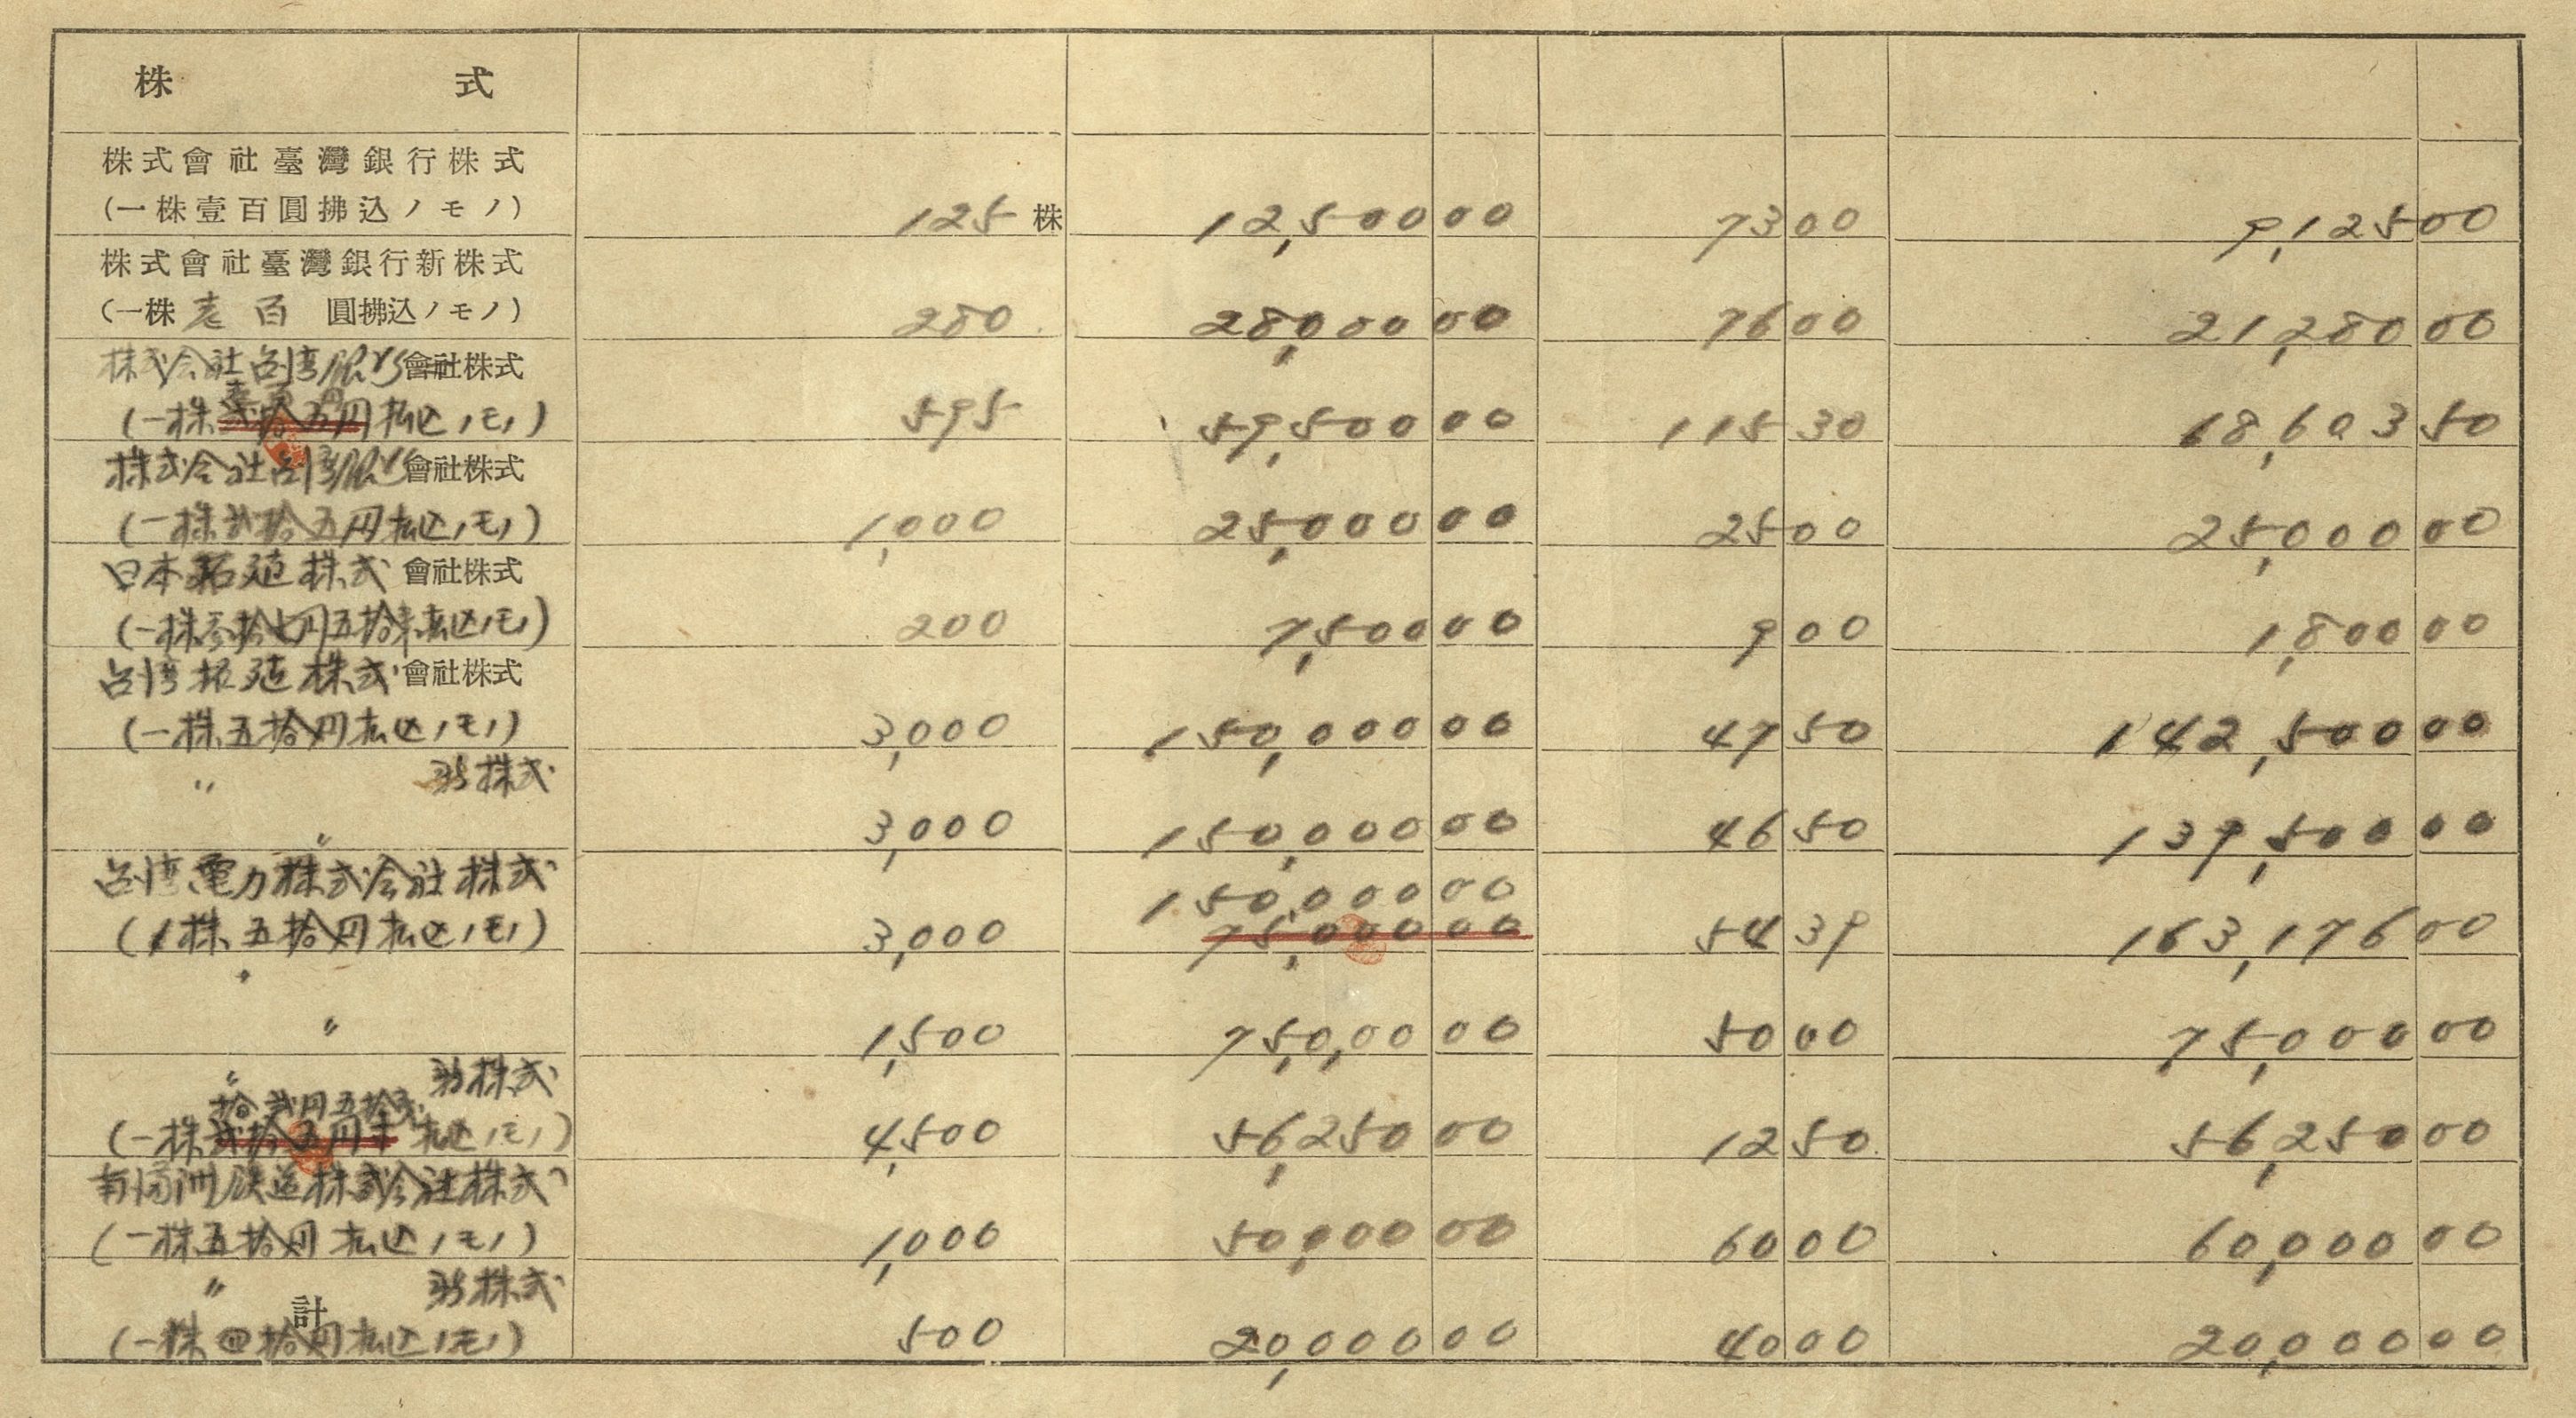 株式
株式會社臺灣銀行株式
(一株壹百圓拂込ノモノ) 125株 12,500 00 73 00 9,125 00
株式會社臺灣銀行新株式
(一株壱百圓拂込ノモノ) 280 28,000 00 76 00 21,280 00
株式会社台湾 會社株式
壱百円
(一株弐拾五円払込ノモノ) 595 59,500 00 115 30 68,603 50
株式会社台湾 會社株式
(一株弐拾五円払込ノモノ) 1,000 25,000 00 25 00 25,000 00
日本拓殖株式會社株式
(一株参拾七円五拾銭払込ノモノ) 200 7,500 00 9 00 1,800 00
台湾拓殖株式會社株式
(一株五拾円払込ノモノ) 3,000 150,000 00 47 50 142,500 00
〃 新株式
〃 3,000 150,000 00 46 50 139,500 00
台湾電力株式会社株式 150,000 00
(1株五拾円払込ノモノ) 3,000 75,000 00 54 39 163,176 00
〃
〃 1,500 75,000 00 50 00 75,000 00
〃 新株式
拾弐円五拾銭
(一株弐拾五円 払込ノモノ) 4,500 56,250 00 12 50 56,250 00
南満洲鉄道株式会社株式
(一株五拾円払込ノモノ) 1,000 50,000 00 60 00 60,000 00
〃 新株式
計
(一株四拾円払込ノモノ) 500 20,000 00 40 00 20,000 00